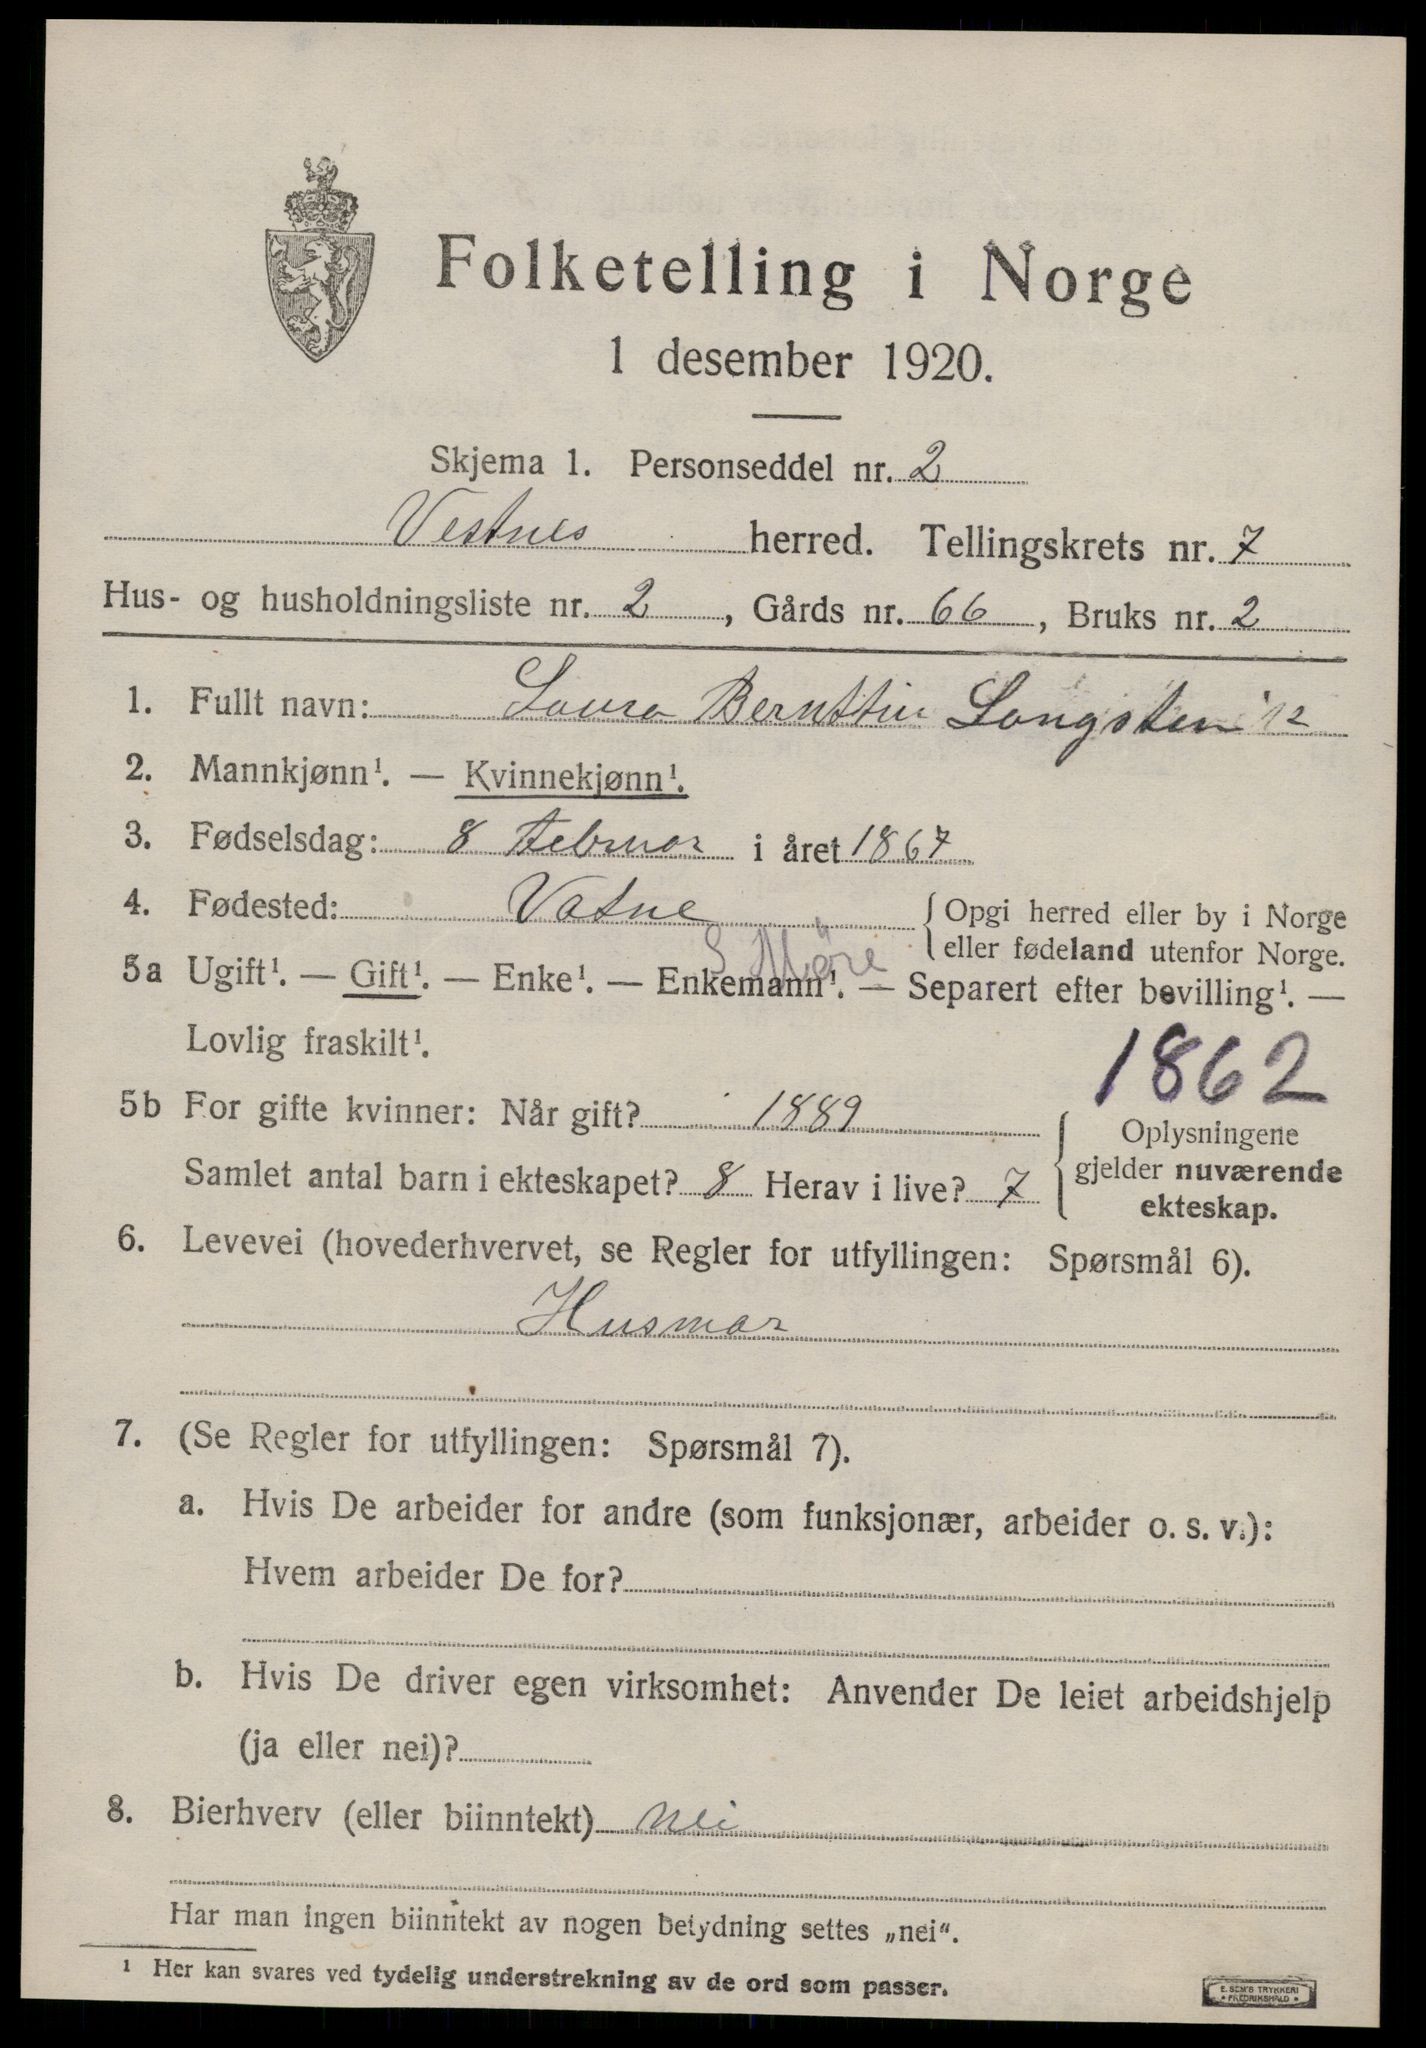 Folketelling i Norge
1 desember 1920.
Skjema 1. Personseddel nr. 2
Vestnes herred. Tellingskrets nr. 7
Hus- og husholdningsliste nr. 2, Gårds nr. 66, Bruks nr. 2
1. Fullt navn: Laura Bernttin Langsten
2. Mannkjønn¹. — Kvinnekjønn¹.
3. Fødselsdag: 8 Februar i året 1867
4. Fødested: Vatne {Opgi herred eller by i Norge
eller fødeland utenfor Norge.
S Møre
5a Ugift¹. — Gift¹. — Enke¹. — Enkemann¹. — Separert efter bevilling¹. —
Lovlig fraskilt¹.
1862
5b For gifte kvinner: Når gift? 1889
Samlet antal barn i ekteskapet? 8 Herav i live? 7
{Oplysningene
gjelder nuværende
ekteskap.
6. Levevei (hovederhvervet, se Regler for utfyllingen: Spørsmål 6).
Husmor
7. (Se Regler for utfyllingen: Spørsmål 7).
a. Hvis De arbeider for andre (som funksjonær, arbeider o. s. v.):
Hvem arbeider De for?
b. Hvis De driver egen virksomhet: Anvender De leiet arbeidshjelp
(ja eller nei)?
8. Bierhverv (eller biinntekt) Nei
Har man ingen biinntekt av nogen betydning settes „nei“.
¹ Her kan svares ved tydelig understrekning av de ord som passer.
E. SEM'S TRYKKERI
* FREDRIKSHALD *